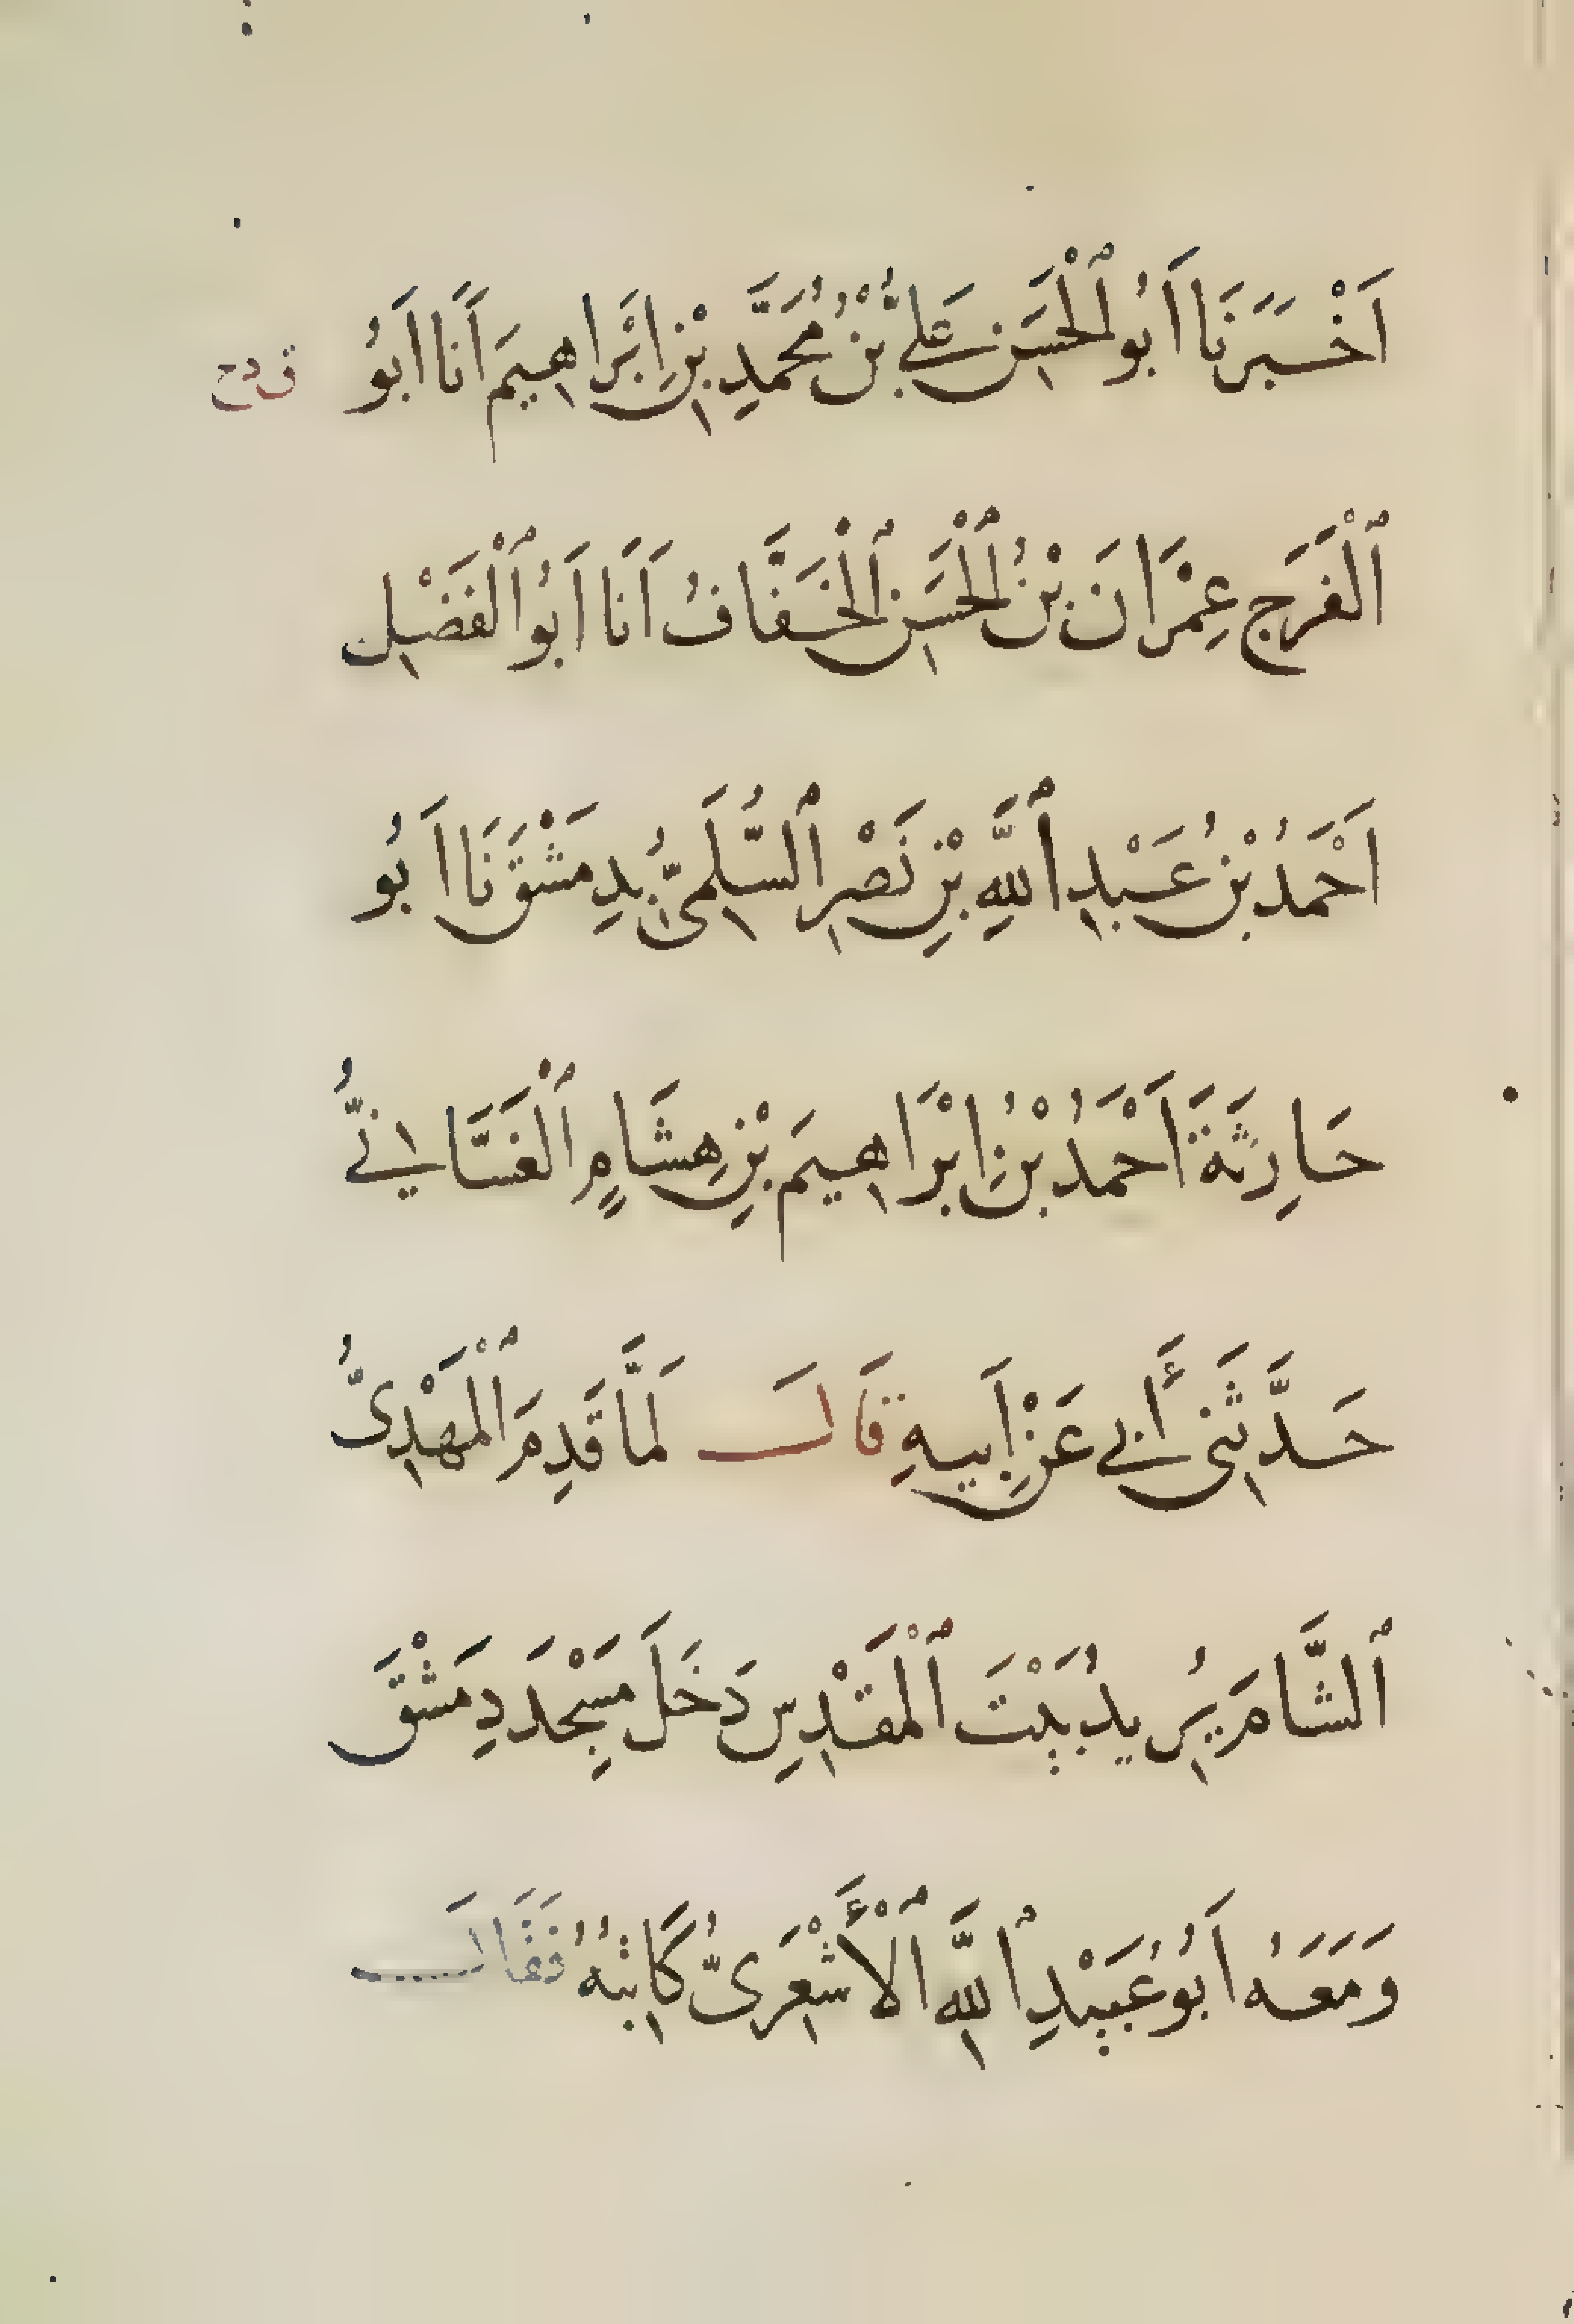 اَخْبَرَنَا اَبُو ٱلْحَسَنِ عَلِيُّ بْنُ مُحَمَّدِ بْنِ اِبْرَاهِيمَ اَنَا اَبُو
ٱلْفَرَجِ عِمْرَانَ بْنُ ٱلْحَسَنِ ٱلْخَفَّافُ اَنَا اَبُو ٱلْفَضْلِ
اَحْمَدُ بْنُ عَبْدِ ٱللَّهِ بْنِ نَصْرِ ٱلسُّلَمِيُّ بِدِمَشْقَ نَا اَبُو
حَارِثَةَ اَحْمَدُ بْنُ اِبْرَاهِيمَ بْنِ هِشَامٍ ٱلْغَسَّانِيُّ
حَدَّثَنِي أَبِي عَنْ اَبِيهِ قَالَ لَمَّا قَدِمَ ٱلْمَهْدِيُّ
ٱلشَّامَ يُرِيدُ بَيْتَ ٱلْمَقْدِسِ دَخَلَ مَسْجِدَ دِمَشْقَ
وَمَعَهُ اَبُو عُبَيْدِ ٱللَّهِ ٱلْأَشْعَرِيُّ كَاتِبُهُ فَقَالَ